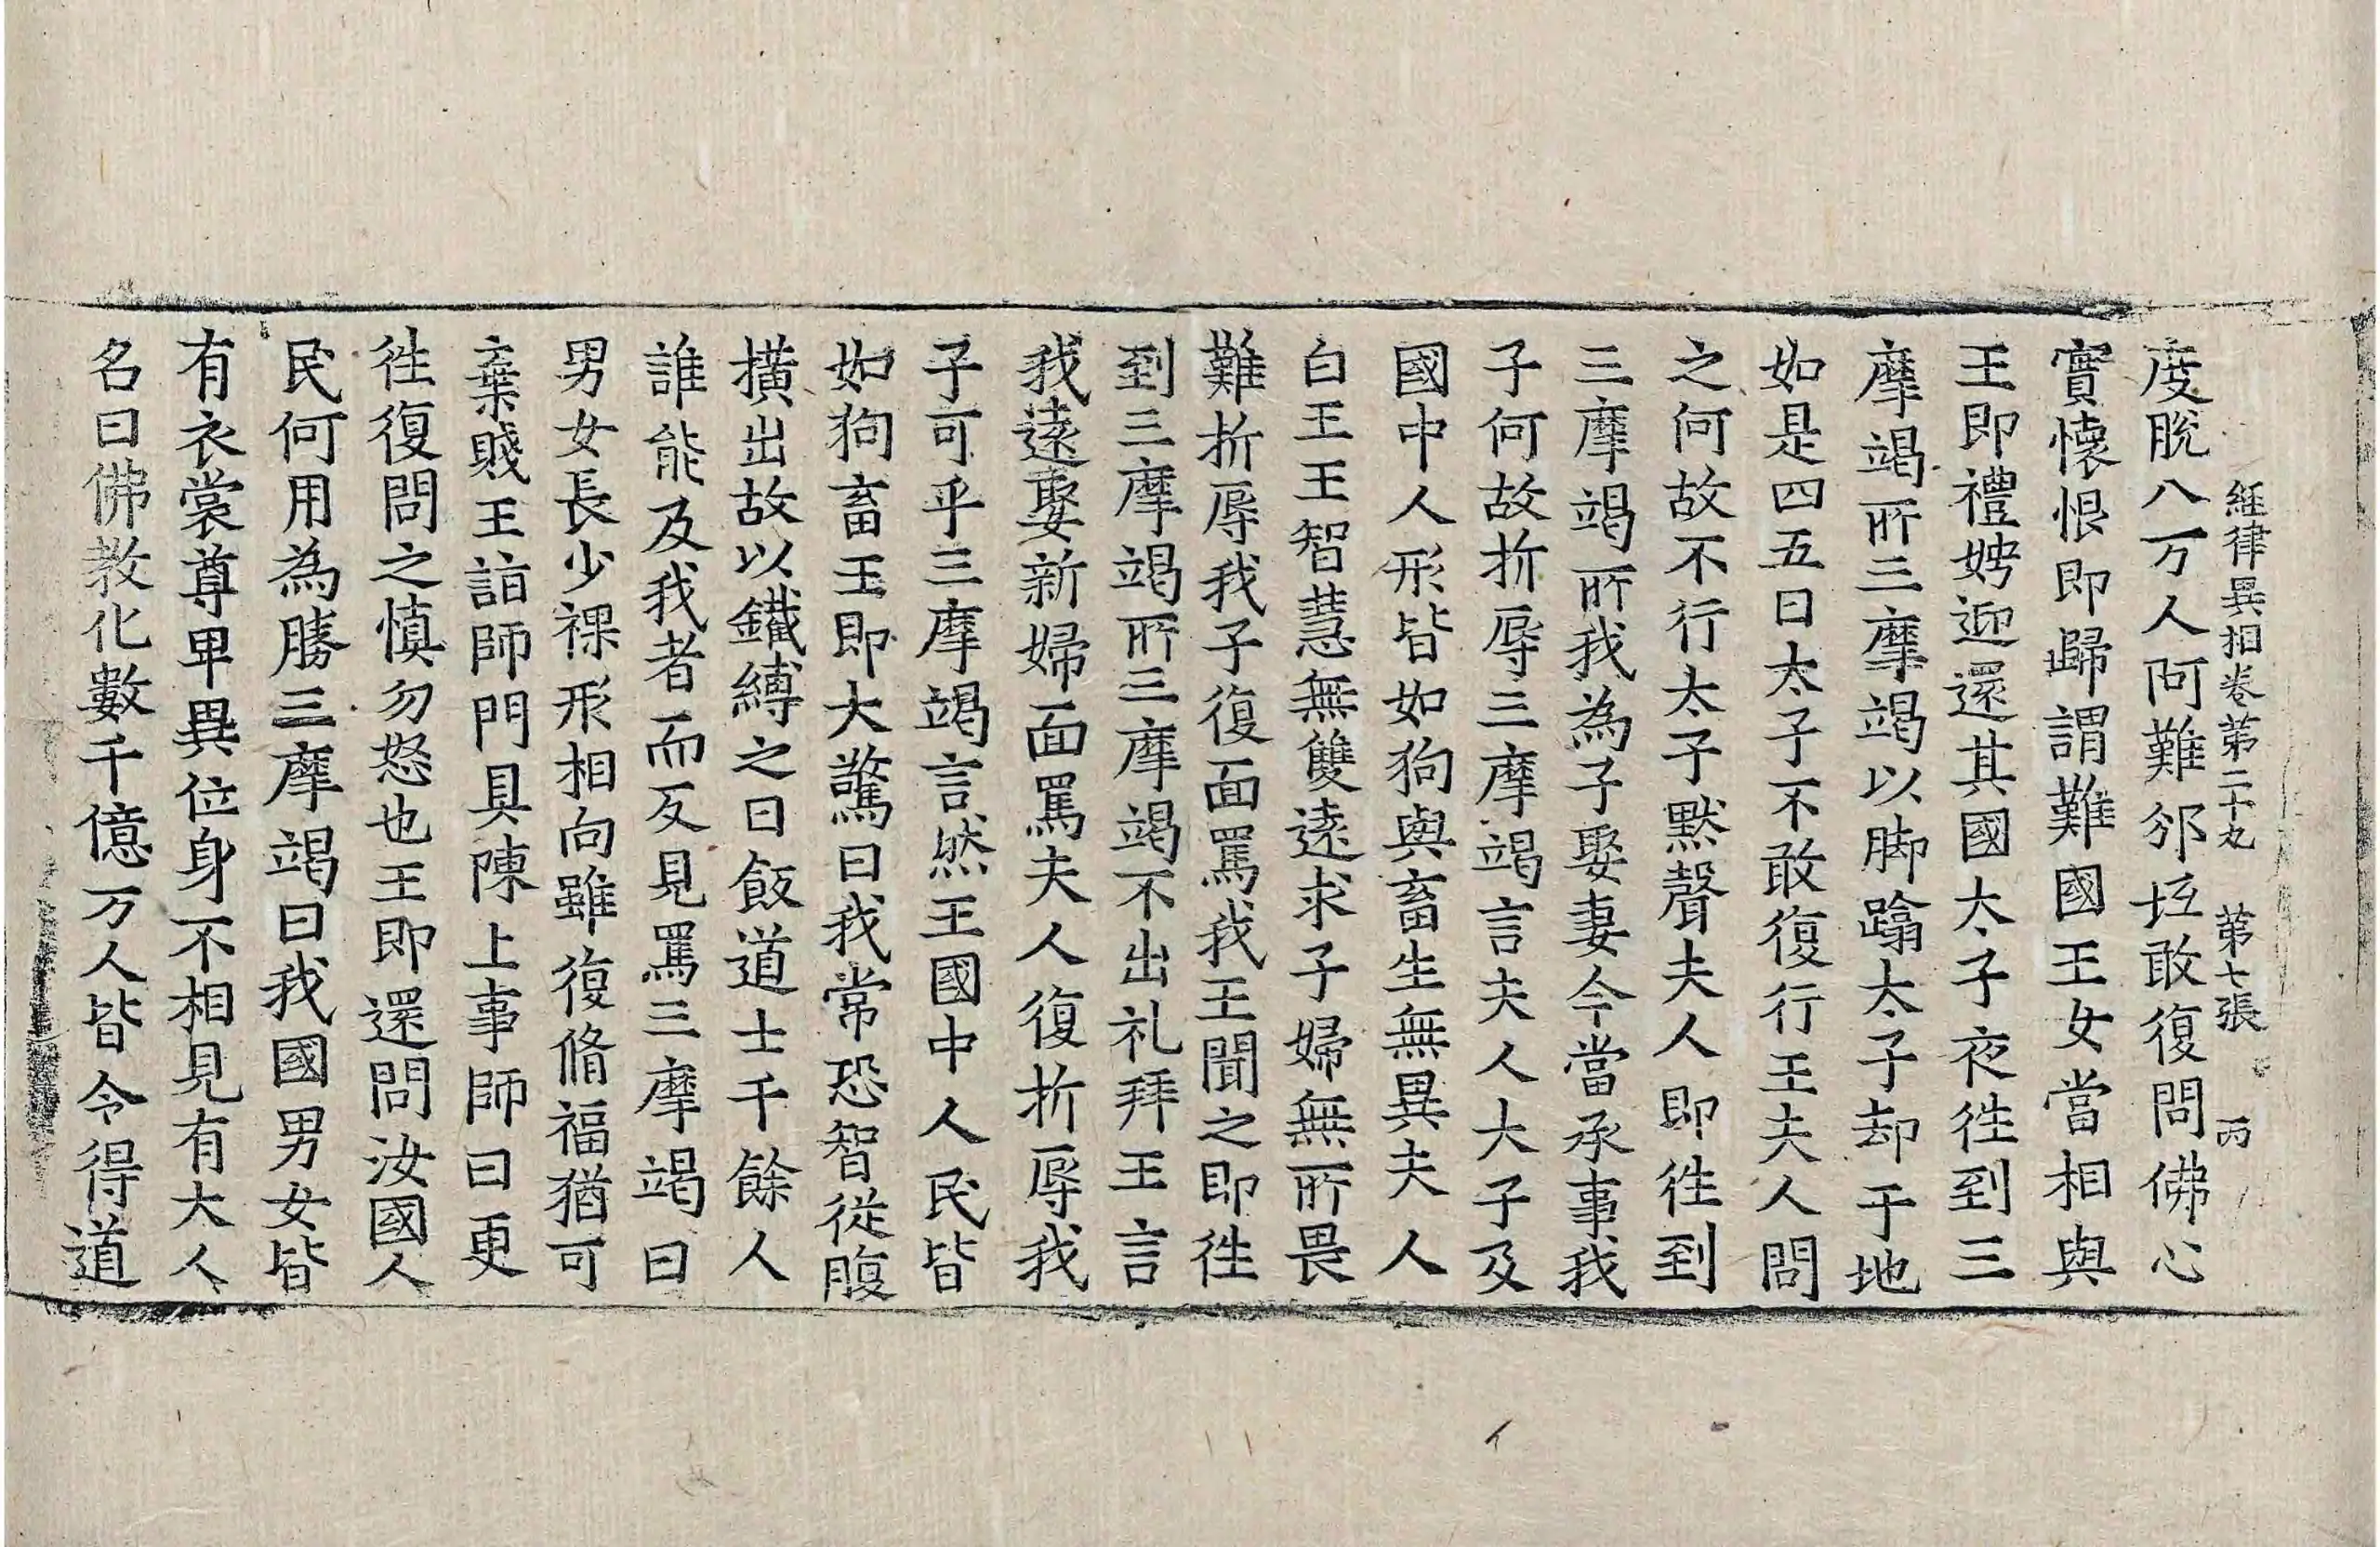 經律異相卷第二十九　第七張　丙
度脫八万人阿難邠坻敢復問佛心
實懷恨即歸謂難國王女當相與
王即禮娉迎還其國太子夜徃到三
摩竭所三摩竭以脚蹹太子却于地
如是四五日太子不敢復行王夫人問
之何故不行太子默聲夫人即徃到
三摩竭所我為子娶妻今當承事我
子何故折辱三摩竭言夫人大子及
國中人形皆如狗與畜生無異夫人
白王王智慧無雙遠求子婦無所畏
難折辱我子復面罵我王聞之即徃
到三摩竭所三摩竭不出礼拜王言
我遠娶新婦面罵夫人復折辱我
子可乎三摩竭言然王國中人民皆
如狗畜王即大驚曰我常恐智從腹
橫出故以鐵縛之日飯道士千餘人
誰能及我者而反見罵三摩竭曰
男女長少裸形相向雖復脩福猶可
棄賤王詣師門具陳上事師曰更
徃復問之慎勿怒也王即還問汝國人
民何用為勝三摩竭曰我國男女皆
有衣裳尊卑異位身不相見有大人
名曰佛教化數千億万人皆令得道